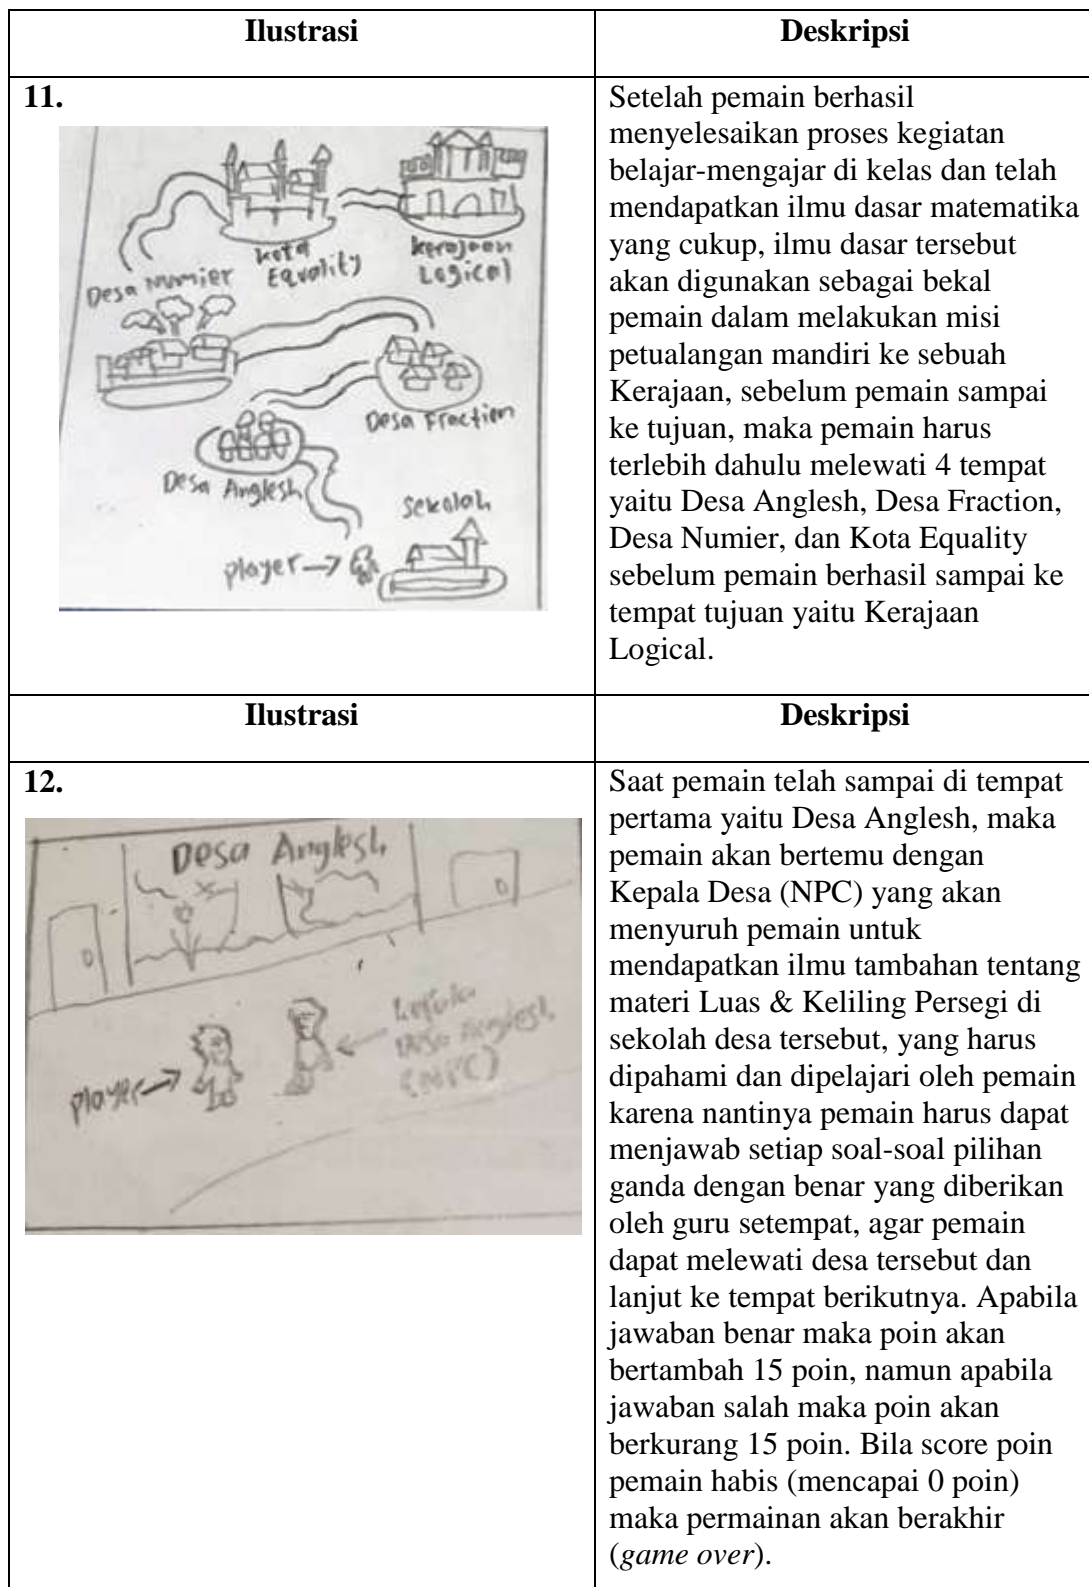 Ilustrasi
Deskripsi
11.
Kota
Equality
Kerajaan
Logical
Desa Numier
Desa Fraction
Desa Anglesh
Sekolah
player
Setelah pemain berhasil
menyelesaikan proses kegiatan
belajar-mengajar di kelas dan telah
mendapatkan ilmu dasar matematika
yang cukup, ilmu dasar tersebut
akan digunakan sebagai bekal
pemain dalam melakukan misi
petualangan mandiri ke sebuah
Kerajaan, sebelum pemain sampai
ke tujuan, maka pemain harus
terlebih dahulu melewati 4 tempat
yaitu Desa Anglesh, Desa Fraction,
Desa Numier, dan Kota Equality
sebelum pemain berhasil sampai ke
tempat tujuan yaitu Kerajaan
Logical.
Ilustrasi
Deskripsi
12.
Desa Anglesh
player
Kepala
Desa Anglesh
(NPC)
Saat pemain telah sampai di tempat
pertama yaitu Desa Anglesh, maka
pemain akan bertemu dengan
Kepala Desa (NPC) yang akan
menyuruh pemain untuk
mendapatkan ilmu tambahan tentang
materi Luas & Keliling Persegi di
sekolah desa tersebut, yang harus
dipahami dan dipelajari oleh pemain
karena nantinya pemain harus dapat
menjawab setiap soal-soal pilihan
ganda dengan benar yang diberikan
oleh guru setempat, agar pemain
dapat melewati desa tersebut dan
lanjut ke tempat berikutnya. Apabila
jawaban benar maka poin akan
bertambah 15 poin, namun apabila
jawaban salah maka poin akan
berkurang 15 poin. Bila score poin
pemain habis (mencapai 0 poin)
maka permainan akan berakhir
(game over).